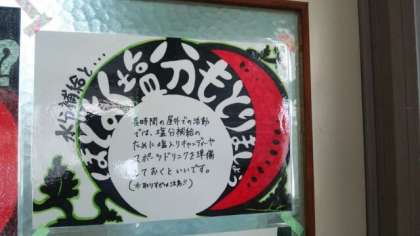 水分補給と…
ほどよく塩分もとりましょう
長時間の屋外での活動
では、塩分補給の
ために塩入りキャンディーや
スポーツドリンクを準備
しておくといいです。
(※取りすぎは注意!!)
?